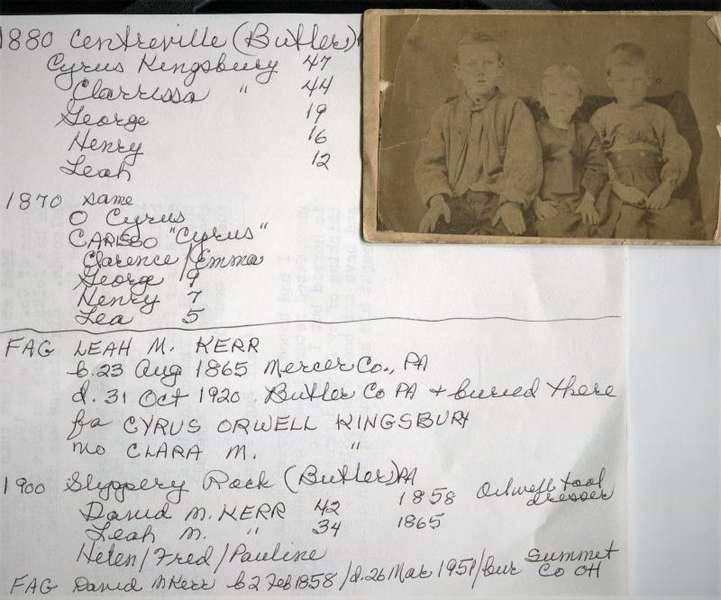 1880 Centreville (Butler)
Cyrus Kingsbury 47
Clarrissa " 44
George 19
Henry 16
Leah 12
1870 same
O Cyrus
"Cyrus"
Clarence/Emma
George 9
Henry 7
Lea 5
FAG LEAH M. KERR
b. 23 Aug 1865 Mercer Co., PA
d. 31 Oct 1920 Butler Co PA + buried there
fa CYRUS ORWELL KINGSBURY
mo CLARA M. "
1900 Slyppery Rock (Butler) PA
David M. KERR 42 1858 Oilwell tool dresser
Leah M. " 34 1865
Helen/Fred/Pauline
FAG David M Kerr b 2 Feb 1858/d. 26 Mar 1951/bur Summit Co OH